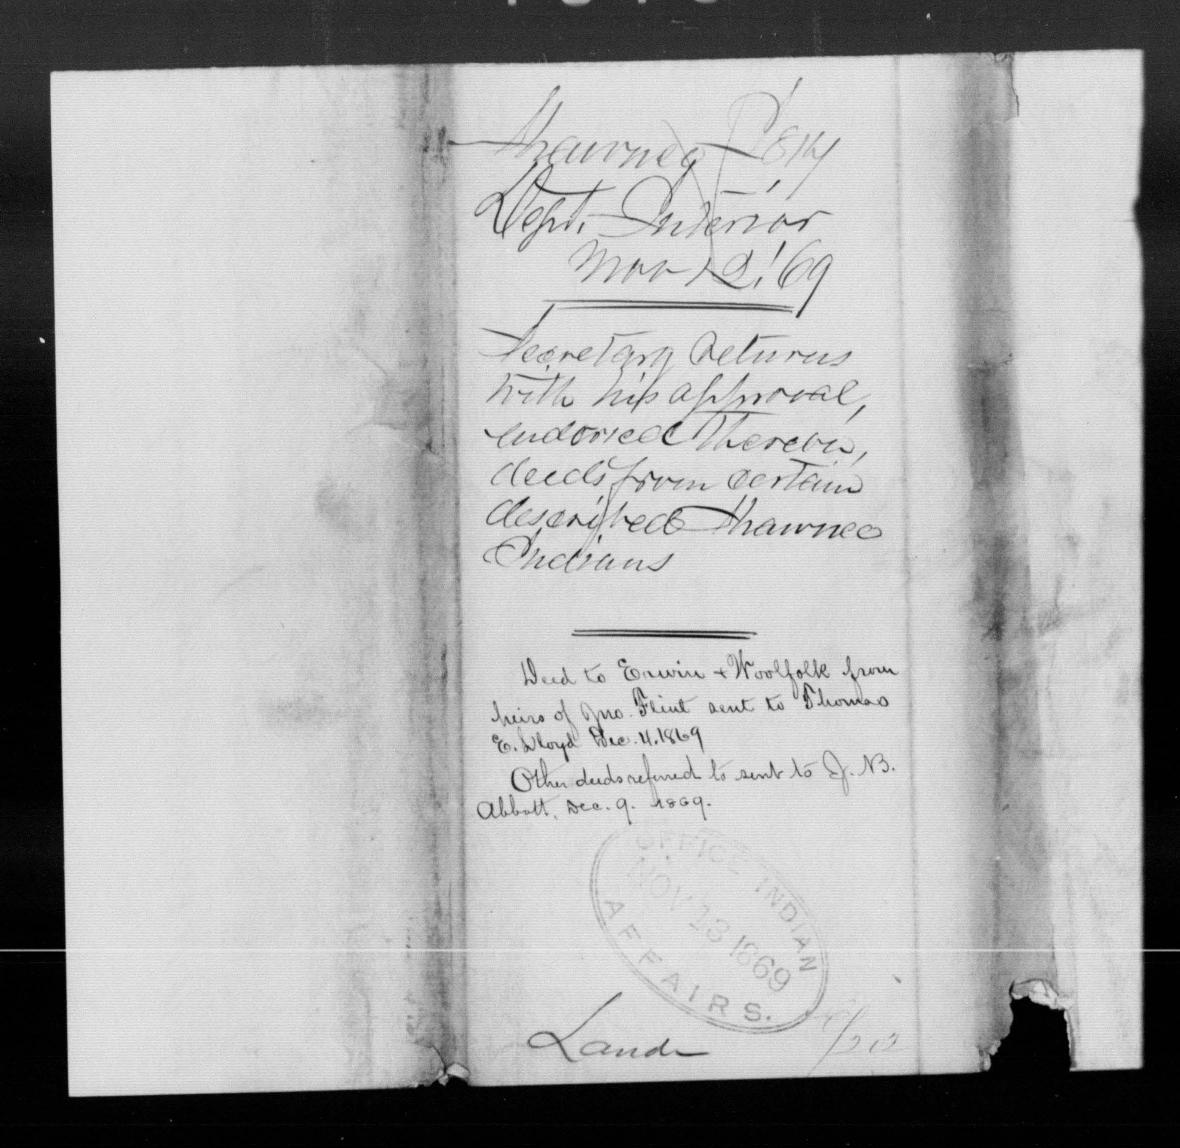 Shawnee I 814
Dept. Interior
Nov 12, '69
Secretary returns
with his approval,
endorsed thereon,
deeds from certain
described Shawnee
Indians
Deed to Erwin + Woolfolk from
heirs of Jno. Flint sent to Thomas
E. Lloyd Dec. 4. 1869
Other deeds referred to sent to J. B.
Abbott, Dec. 9. 1869.
OFFICE INDIAN
NOV 13 1869
AFFAIRS.
Land